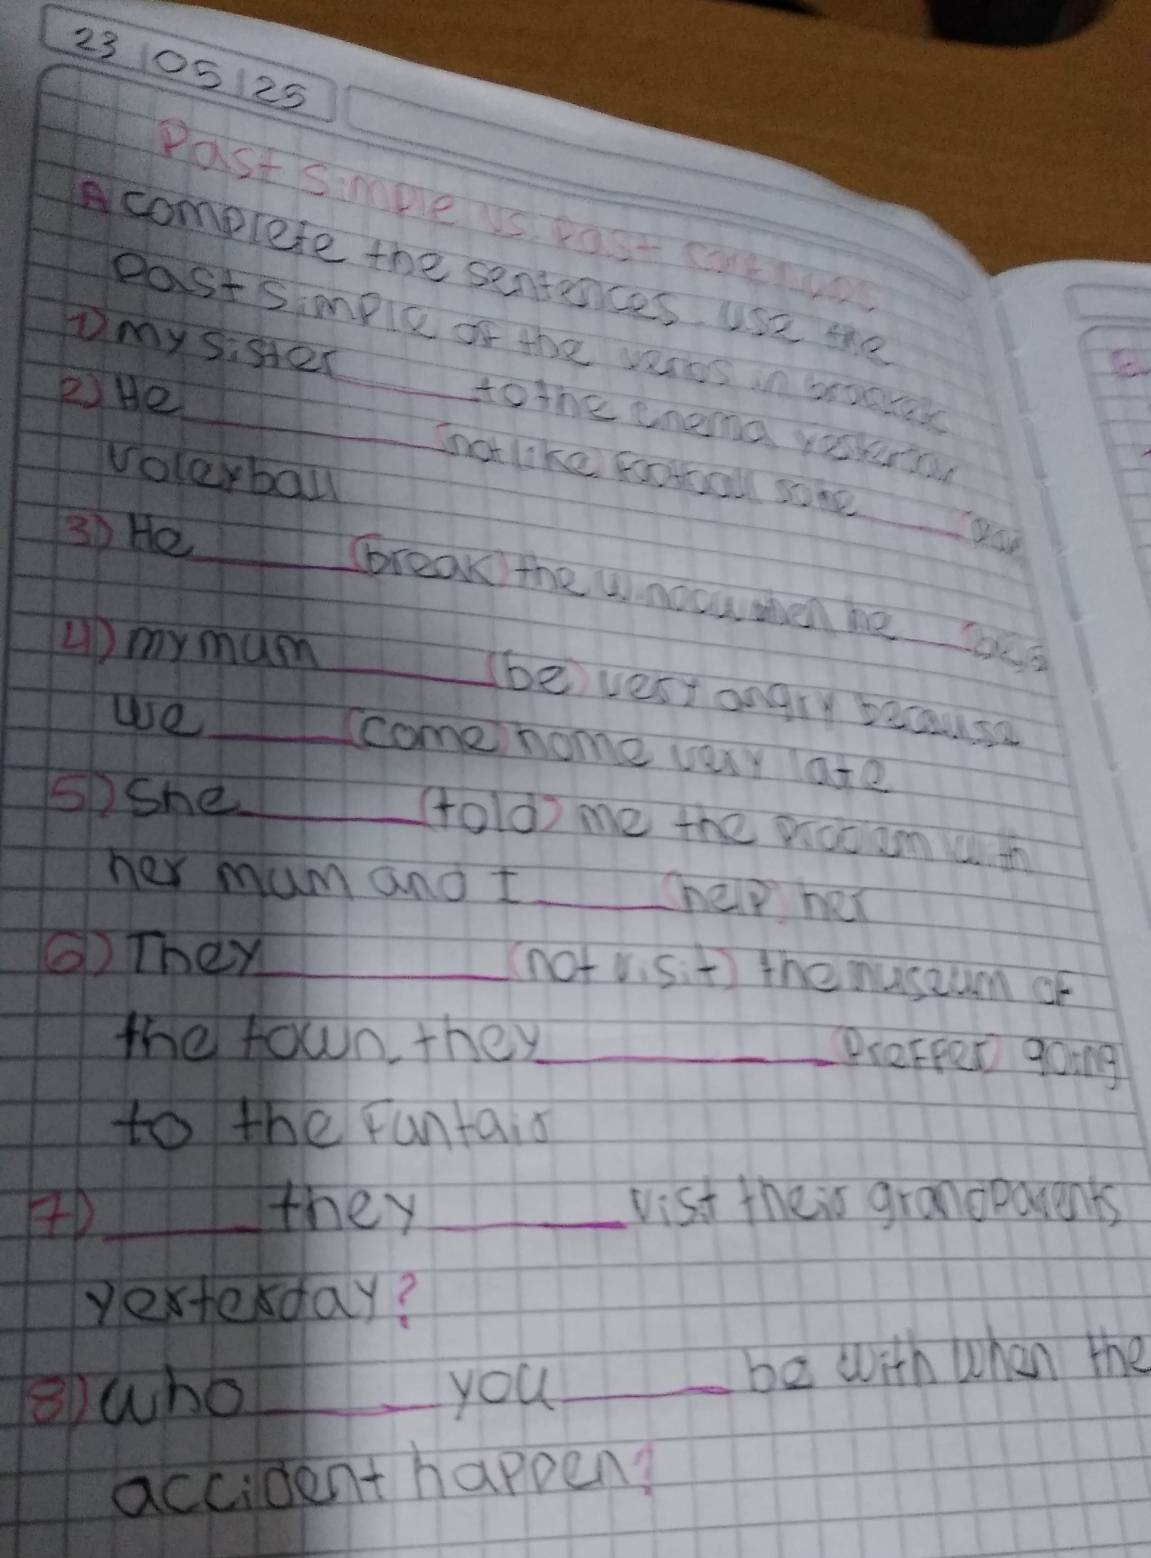 23 05 25
Past simple vs past
A complete the sentences. use the
past simple of the verbs in
1) my sister ____ to the cnema yesterday
2) He ____ (not like football some ____
voleyball
3) He ____ (break) the when he ____
4) my mum ____ (be) very angry because
we ____ (come) home very late
5) She ____ (told) me the with
her mum and I ____ (help her
6) They ____ (not visit) the museum of
the town. they ____ preffer) going
to the Funfair
7) ____ they ____ visit their grandparents
yesterday?
8) who ____ you ____ be with when the
accident happen?